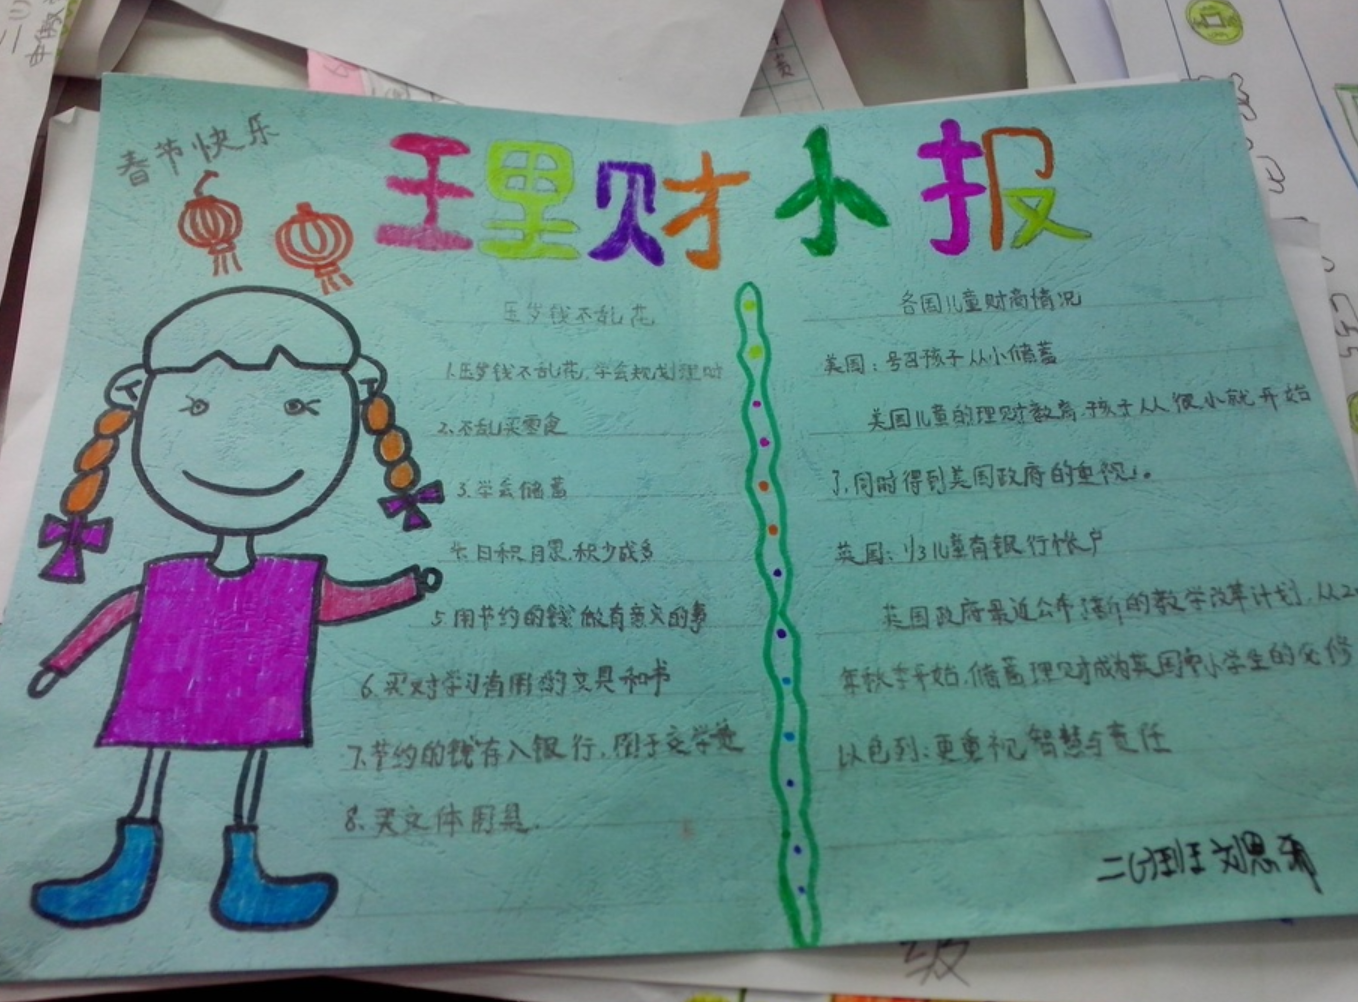 春节快乐
理财小报
压岁钱不乱花
1.压岁钱不乱花,学会规划理财
2.不乱买零食
3.学会储蓄
4.日积月累,积少成多
5.用节约的钱做有意义的事
6.买对学习有用的文具和书
7.节约的钱存入银行,用于交学费
8.买文体用具.
各国儿童财商情况
美国:号召孩子从小储蓄
美国儿童的理财教育,孩子从很小就开始
了,同时得到美国政府的重视。
英国:1/3儿童有银行帐户
英国政府最近公布清新的教学改革计划,从20
年秋季开始,储蓄理财成为英国中小学生的必修
以色列:更重视智慧与责任
二(1)班 刘思
级